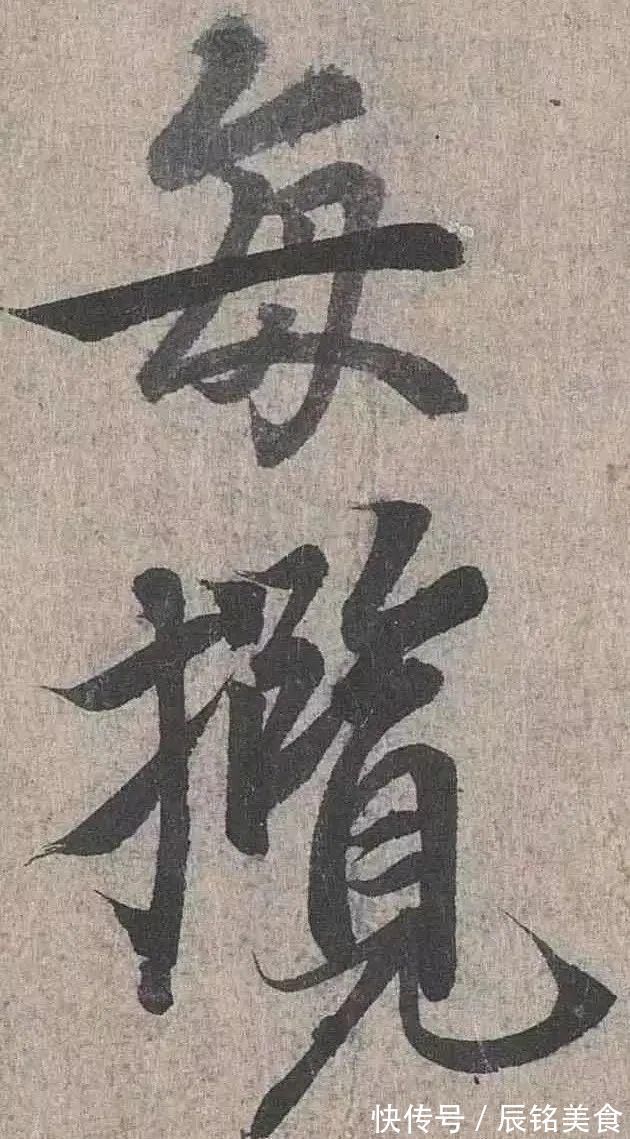 每攬
快传号 / 辰铭美食